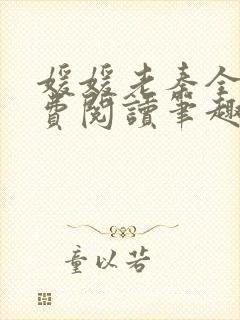 媛媛老秦全
費閱讀筆趣
童以若